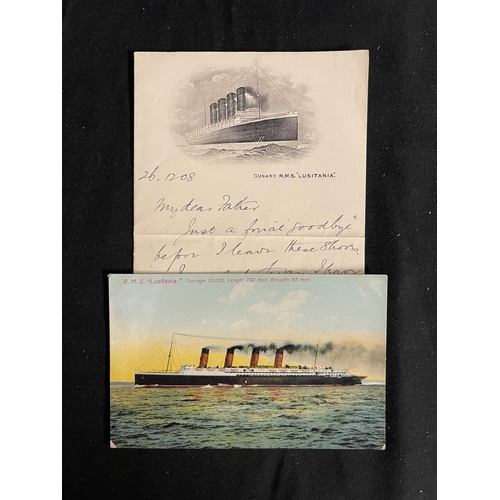 CUNARD R.M.S. "LUSITANIA".
26.12.08
My dear Father
Just a final "goodbye"
before I leave these shores.
I have
R. M. S. "Lusitania." Tonnage 32,000, Length 785 feet. Breadth 88 feet.